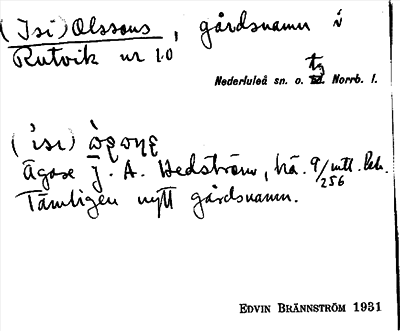 (Isi) Olssons, gårdsnamn i
Rutvik nr 10
Nederluleå sn. o. tg Norrb. l.
Ägare J. A. Hedström, hä. 9/ mtl.
256
Tämligen nytt gårdsnamn.
EDVIN BRÄNNSTRÖM 1931